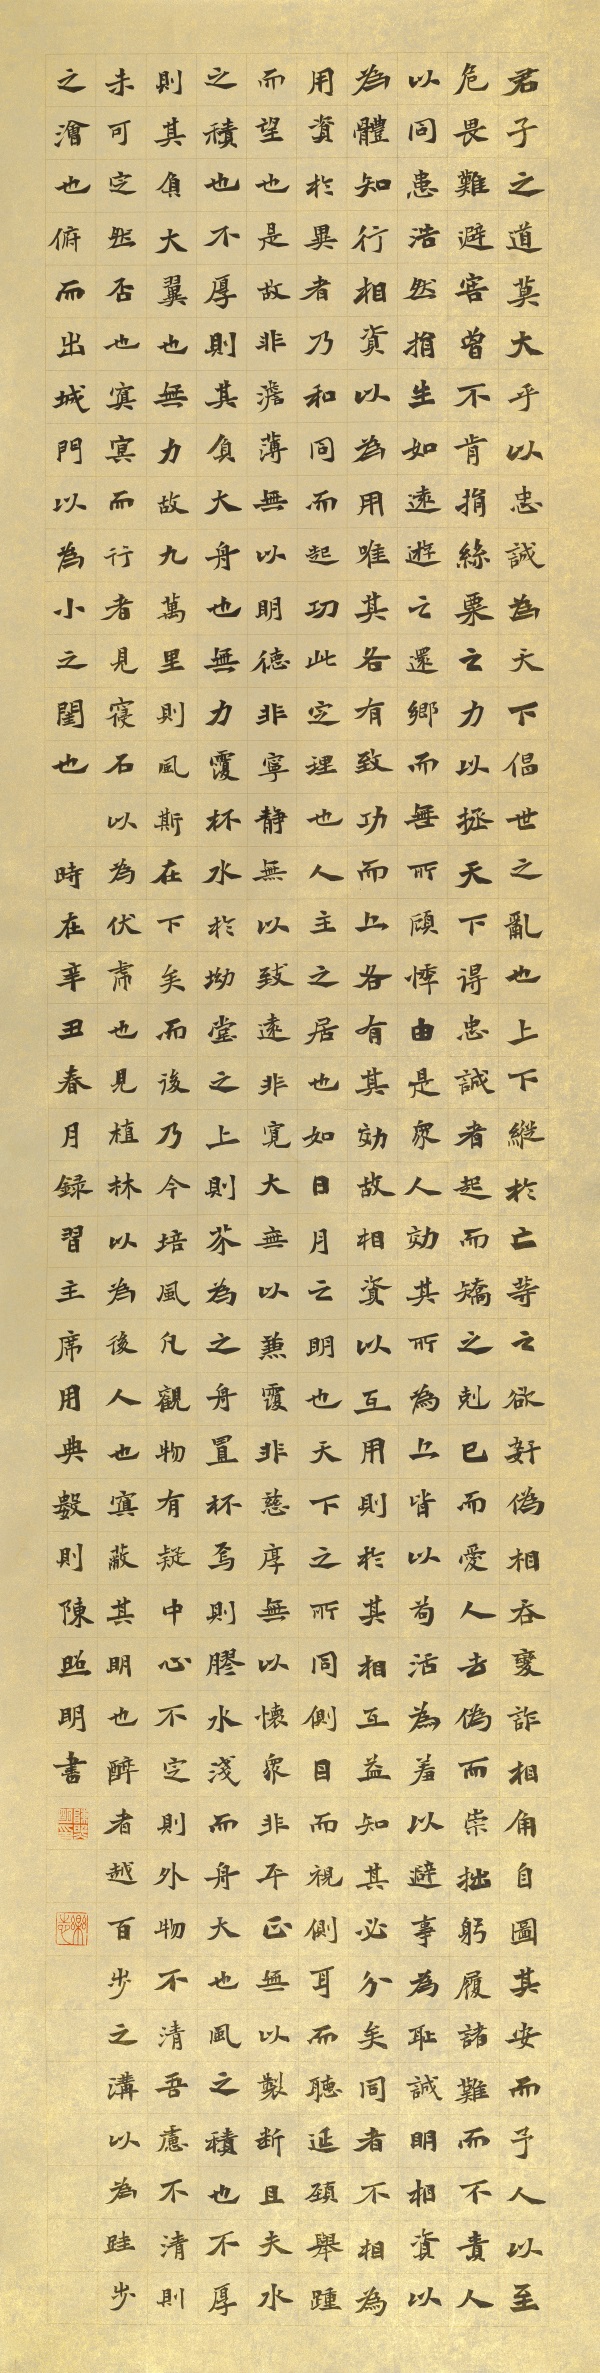 君子之道莫大乎以忠誠為天下倡世之亂也上下縱於亡等之欲奸偽相吞變詐相角自圖其安而予人以至
危畏難避害曾不肯捐絲粟之力以拯天下得忠誠者起而矯之剋己而愛人去偽而崇拙躬履諸難而不責人
以同患浩然捐生如遠遊之還鄉而無所顧悸由是眾人効其所為上皆以苟活為羞以避事為恥誠明相資以
為體知行相資以為用唯其各有致功而上各有其効故相資以互用則於其相互益知其必分矣同者不相為
用資於異者乃和同而起功此定理也人主之居也如日月之明也天下之所同側目而視側耳而聽延頸舉踵
而望也是故非澹薄無以明德非寧静無以致遠非寬大無以兼覆非慈厚無以懷眾非平正無以製斷且夫水
之積也不厚則其負大舟也無力覆杯水於坳堂之上則芥為之舟置杯焉則膠水淺而舟大也風之積也不厚
則其負大翼也無力故九萬里則風斯在下矣而後乃今培風凡觀物有疑中心不定則外物不清吾慮不清則
未可定然否也冥冥而行者見寢石以為伏虎也見植林以為後人也冥蔽其明也醉者越百步之溝以為跬步
之澮也俯而出城門以為小之閨也 時在辛丑春月録習主席用典數則陳照明書